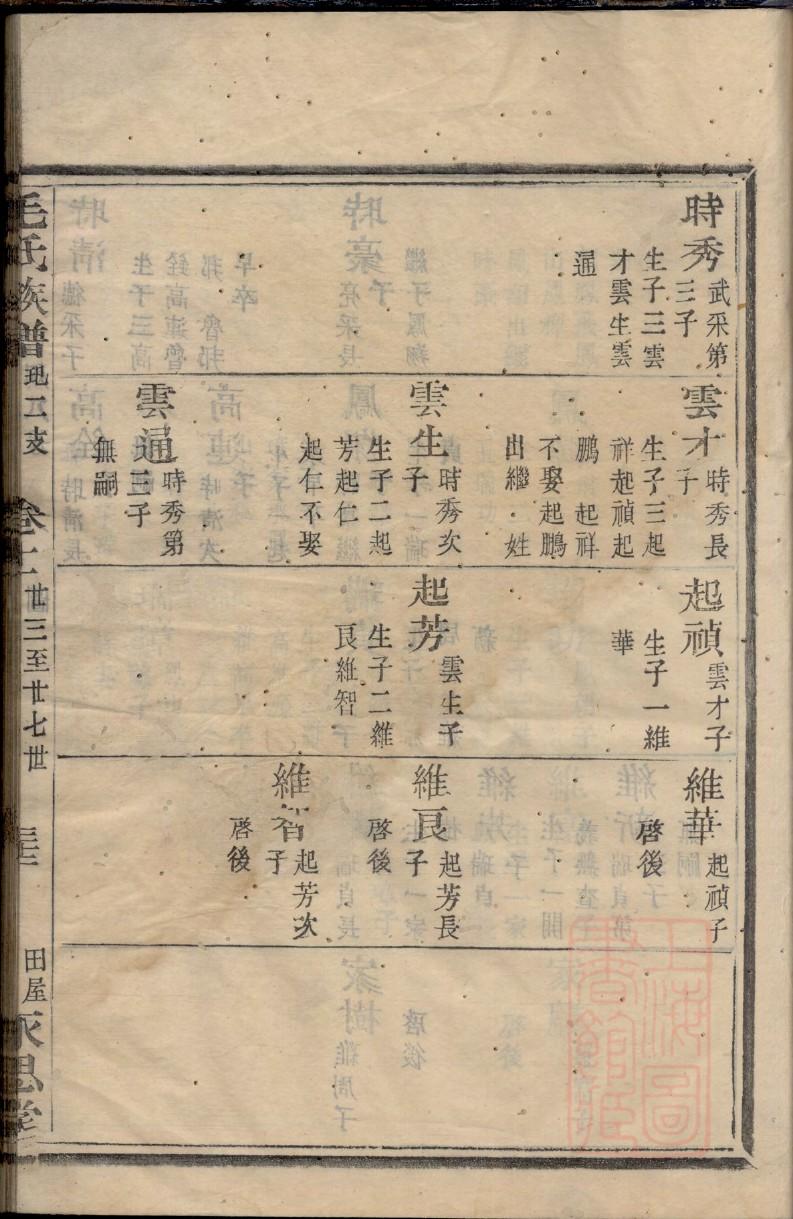 時秀 武采第
三子
生子三雲
才雲生雲
通
雲才 時秀長
子
生子三起
祥起禎起
鵬 起祥
不娶起鵬
出繼 姓
雲生 時秀次
子
生子二起
芳起仁
起仁不娶
雲通 時秀第
三子
無嗣
起禎 雲才子
生子一維
華
起芳 雲生子
生子二維
良維智
維華 起禎子
啓後
維良 起芳長
子
啓後
維智 起芳次
子
啓後
毛氏族譜 卷十一 廿三至廿七世 田屋 永思堂